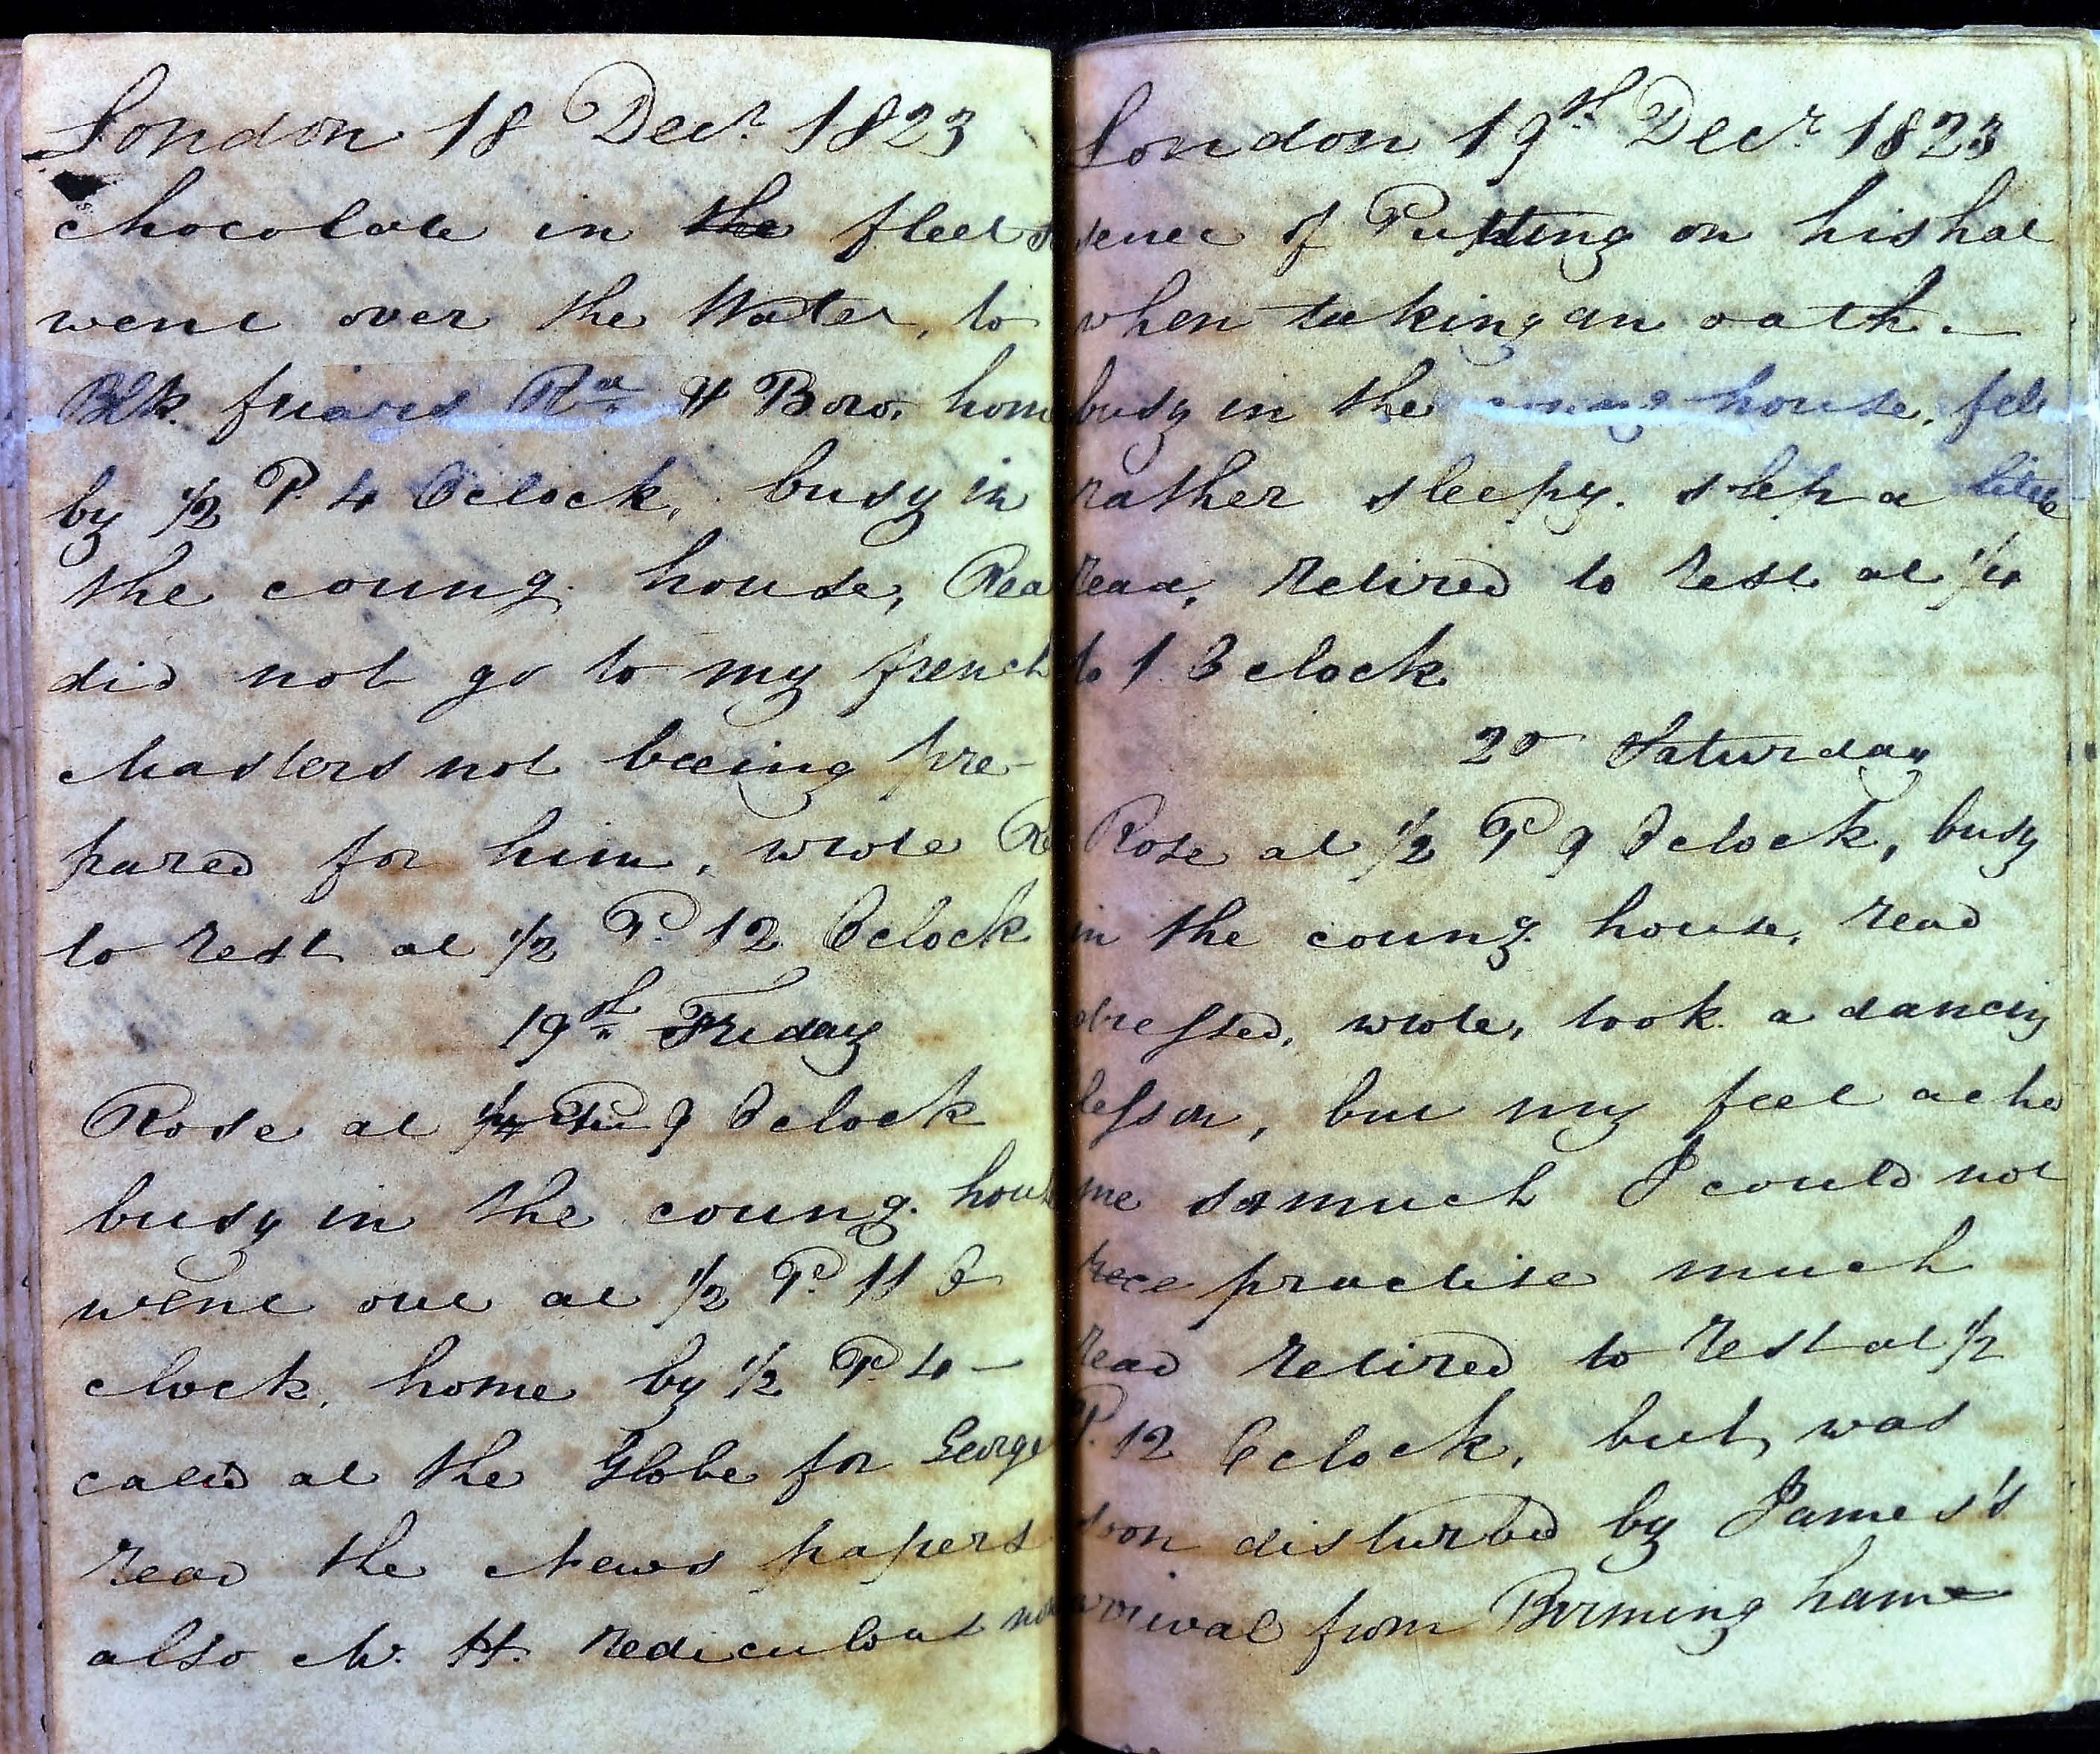 London 18 Decr. 1823
chocolate in the fleet
went over the Water, to
Blk. friars Rd. & Boro. hom
by 1/2 P. 4 Oclock, busy in
the coung. house, Rea
did not go to my french
Masters not beeing pre-
pared for him, wrote Re
to rest at 1/2 P. 12 Oclock
19th Friday
Rose at 1/4 9 Oclock
busy in the coung. house
went out at 1/2 P. 11 O
clock, home by 1/2 P. 4 -
called at the Globe for George
read the News papers
also M. H. rediculous
London 19th Decr. 1823
of Putting on his hat
when taking an oath. -
busy in the coung house, felt
rather sleepy. slept a little
read, retired to rest at 1/4
to 1 Oclock
20 Saturday
Rose at 1/2 P 9 Oclock, busy
in the coung. house, read
dressed, wrote, took a dancing
lesson, but my feet ached
me so much I could not
practise much
read retired to rest at 1/2
P. 12 Oclock, but was
soon disturbed by James's
arrival from Birmingham